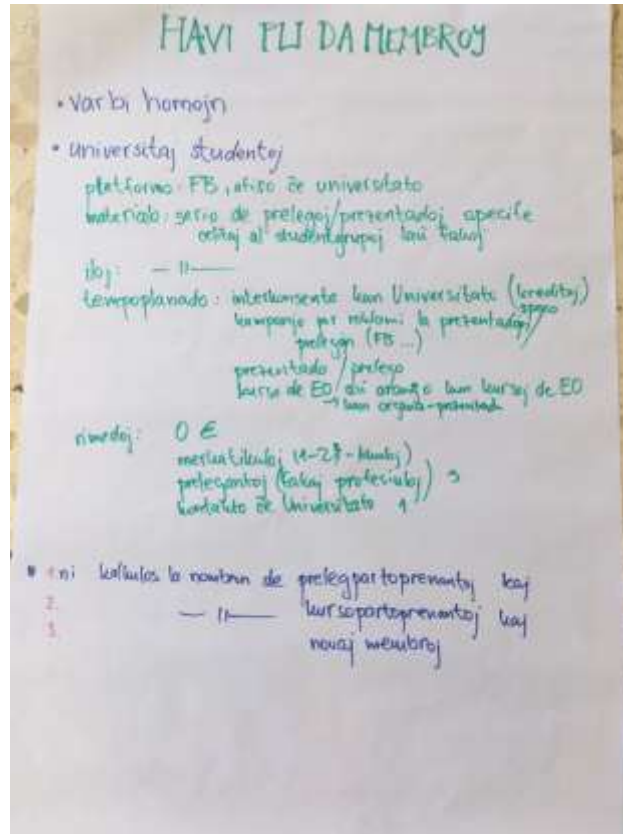 HAVI PLI DA MEMBROJ
• varbi homojn
• universitaj studentoj
platformo: FB, afiŝo ĉe universitato
materialo: serio de prelegoj/prezentadoj specife
al studentgrupoj laŭ fakoj
iloj: — 〃 —
tempoplanado: interkonsento kun Universitato (kreditoj,)
spaco
kampanjo por reklami la prezentadon/
prelegon (FB ...)
prezentado / prelego
kurso de EO aŭ aranĝo kun kursoj de EO
rimedoj: 0 €
prelegantoj (fakaj profesiuloj) 3
kontakto ĉe Universitato 1
• 1 ni kalkulos la nombron de prelegpartoprenantoj kaj
2. — 〃 — kursopartoprenantoj kaj
3. novaj membroj